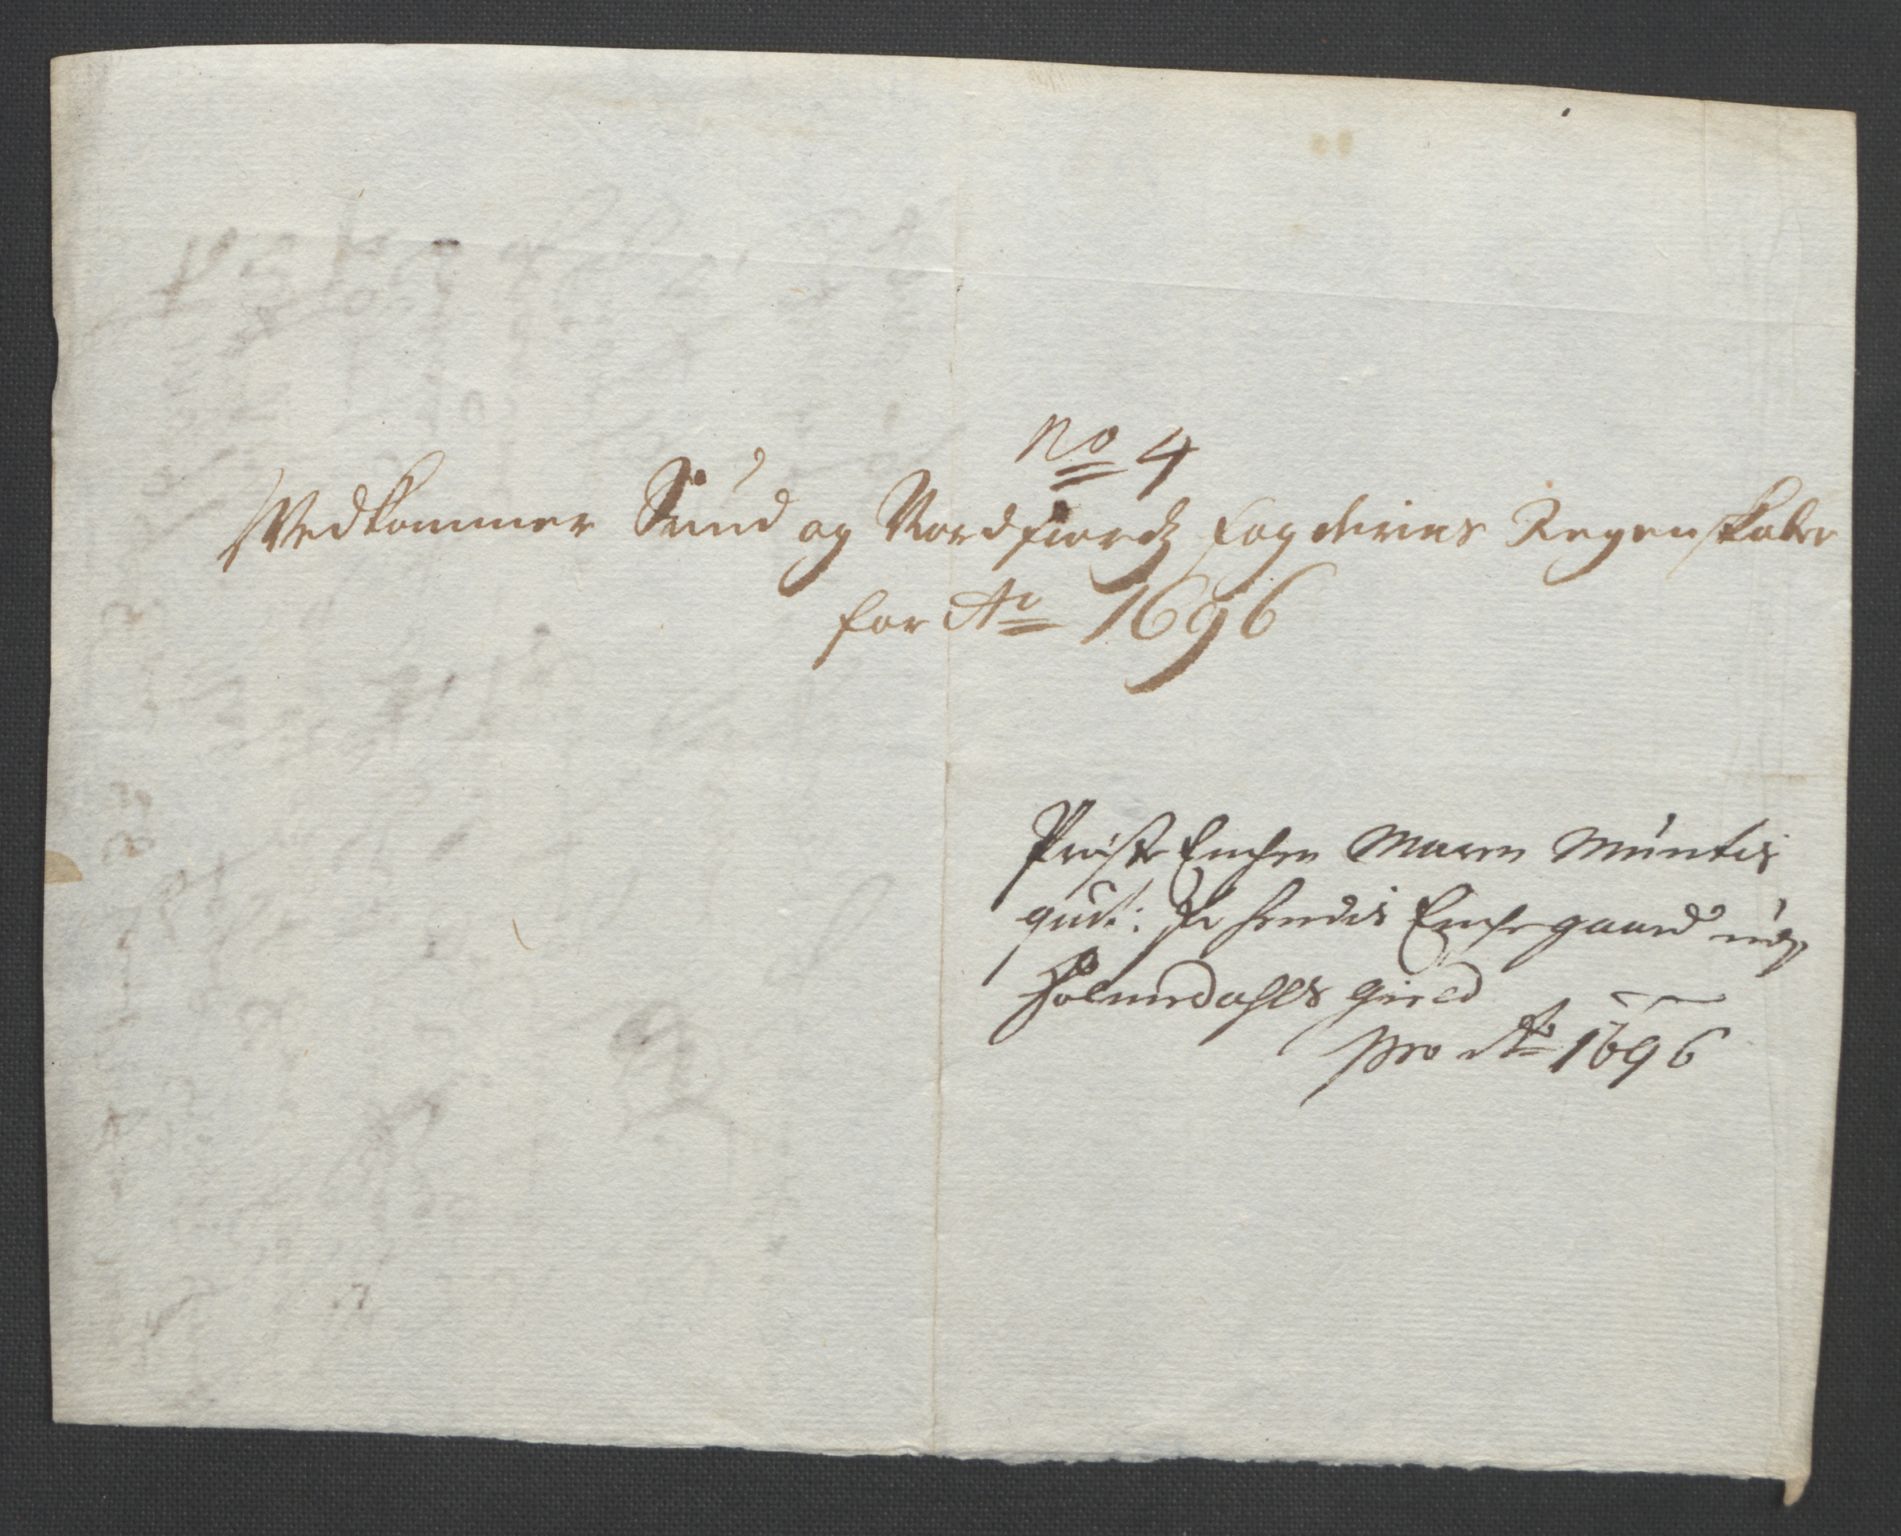 No 4
Vedkommer Sund og Nordfiords fogderies Regenskaber
for Ao 1696
Præste Enchen Maren Müntes
qvit: for hendes Enche gaard udj
Holmedahls gield
pro Ao 1696